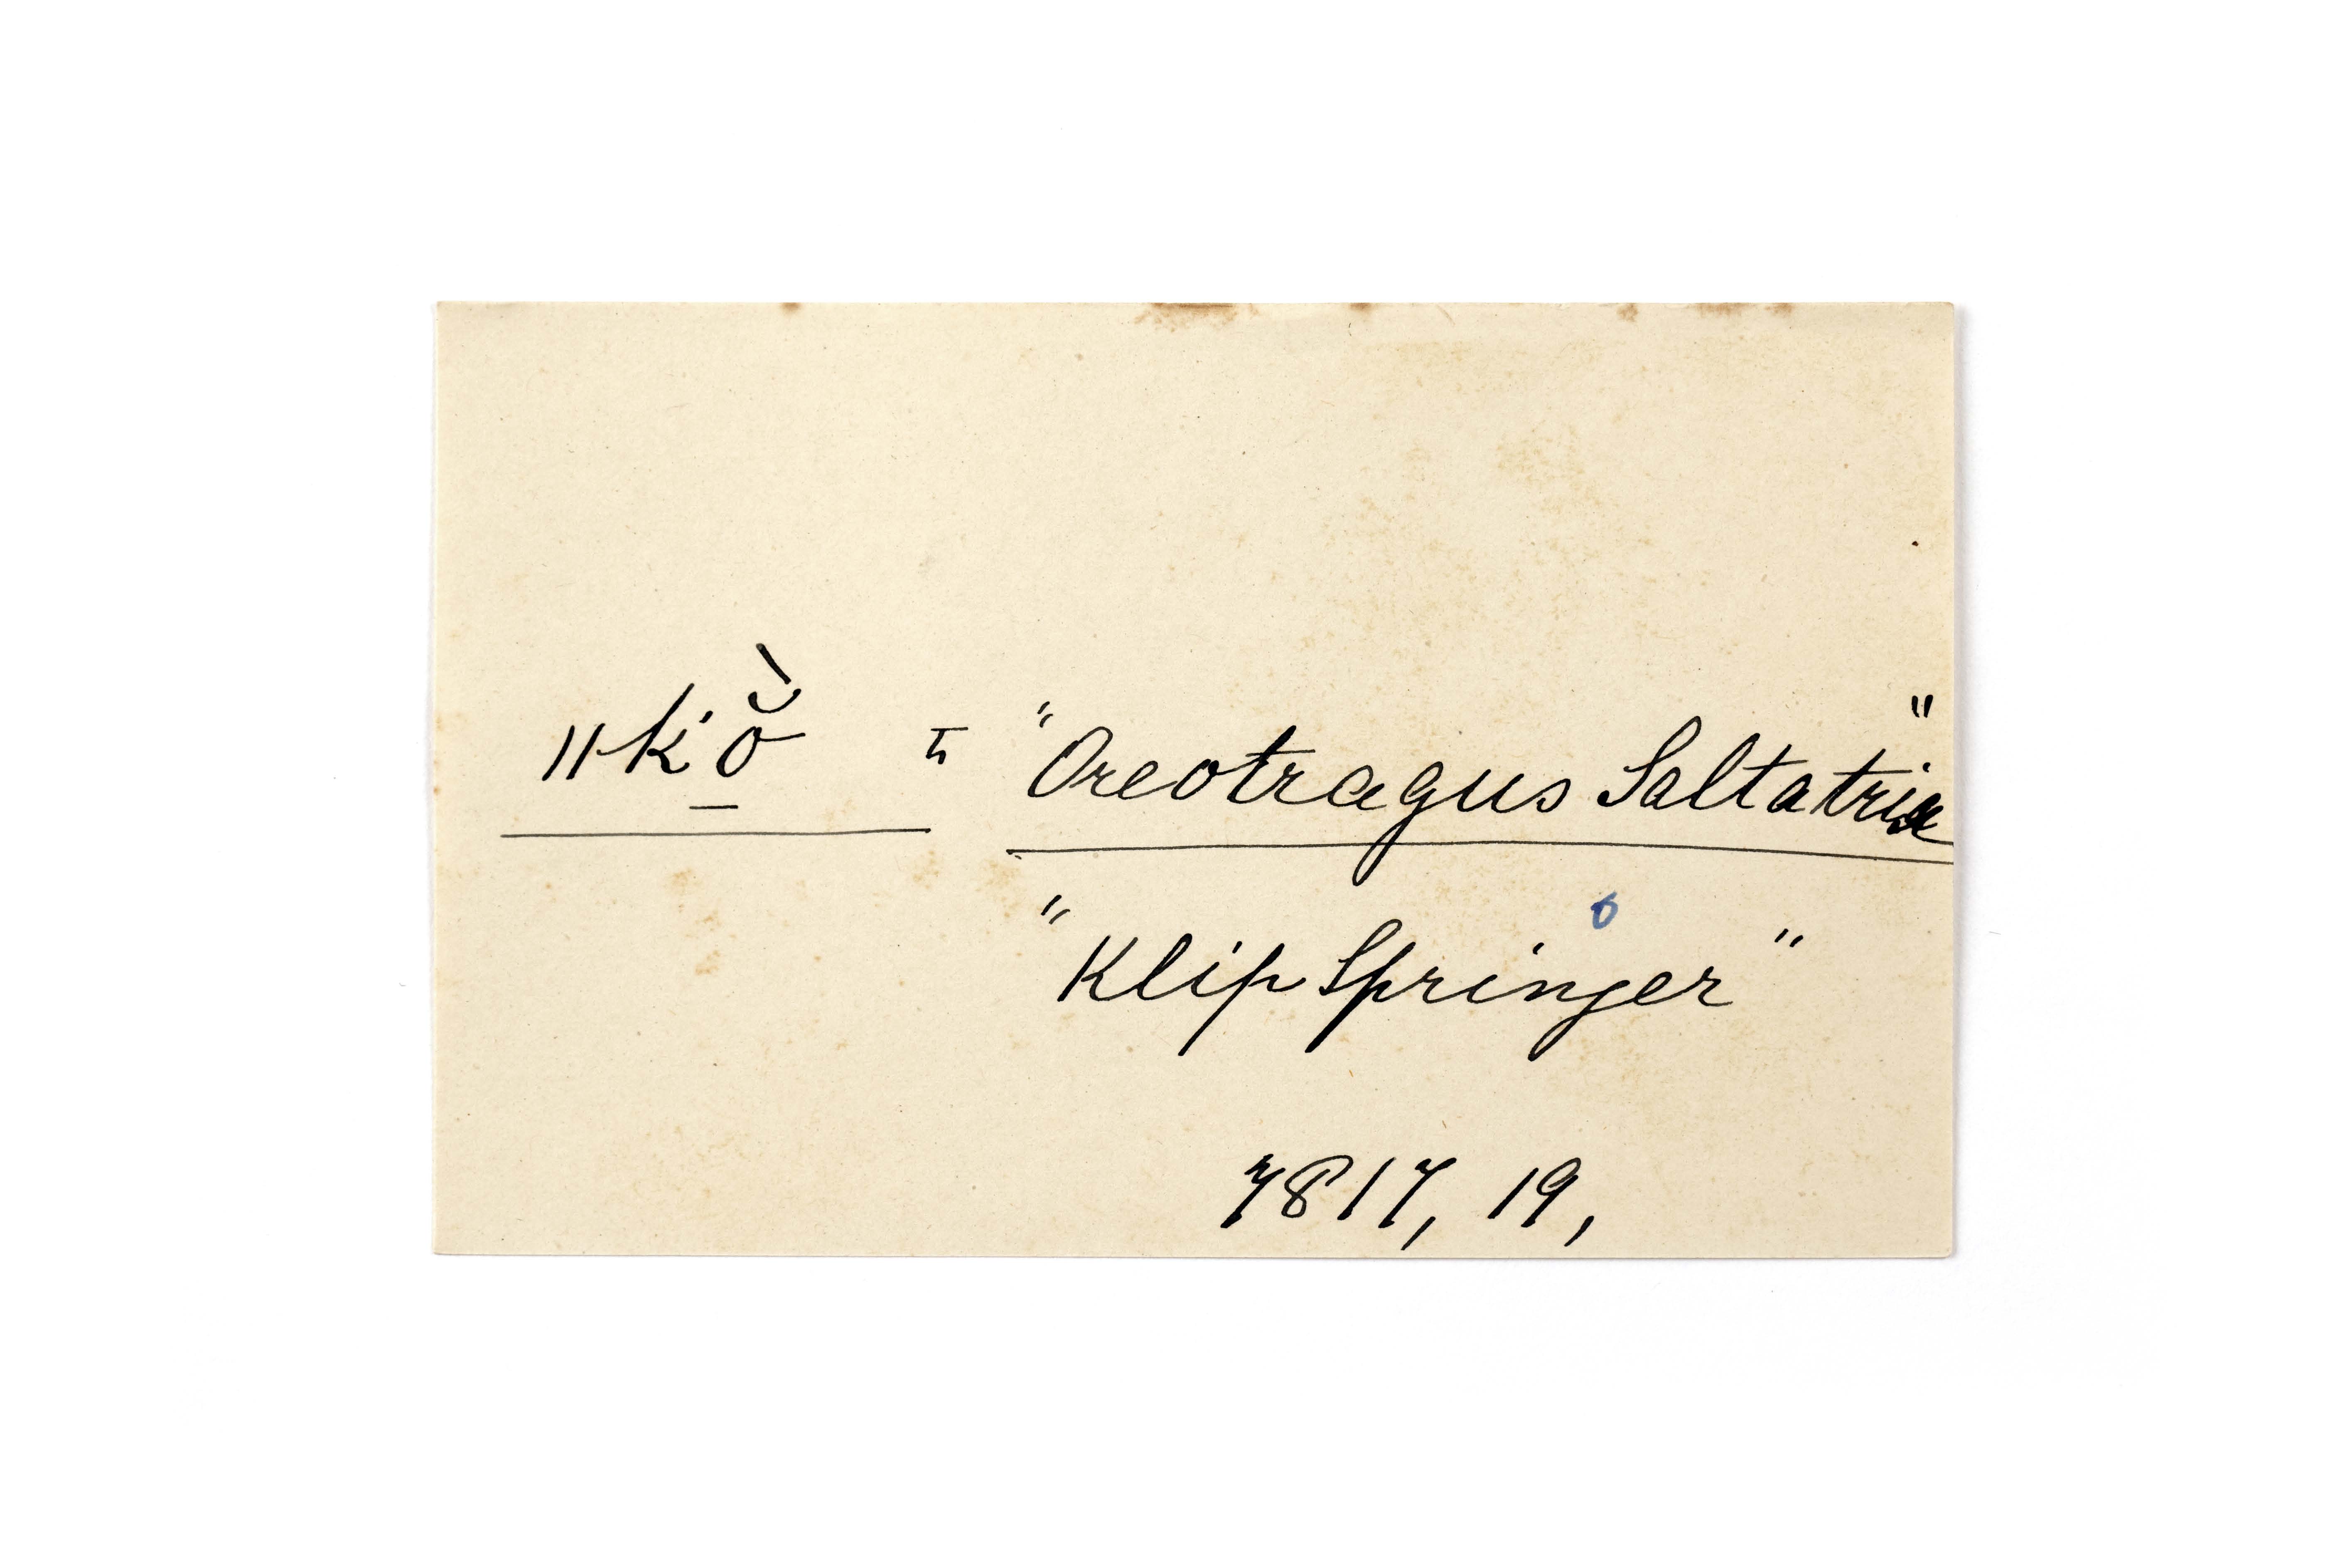 ǁk'ŏ̠̀ = "Oreotragus Saltatrix"
"Klip Springer"
7817, 19,